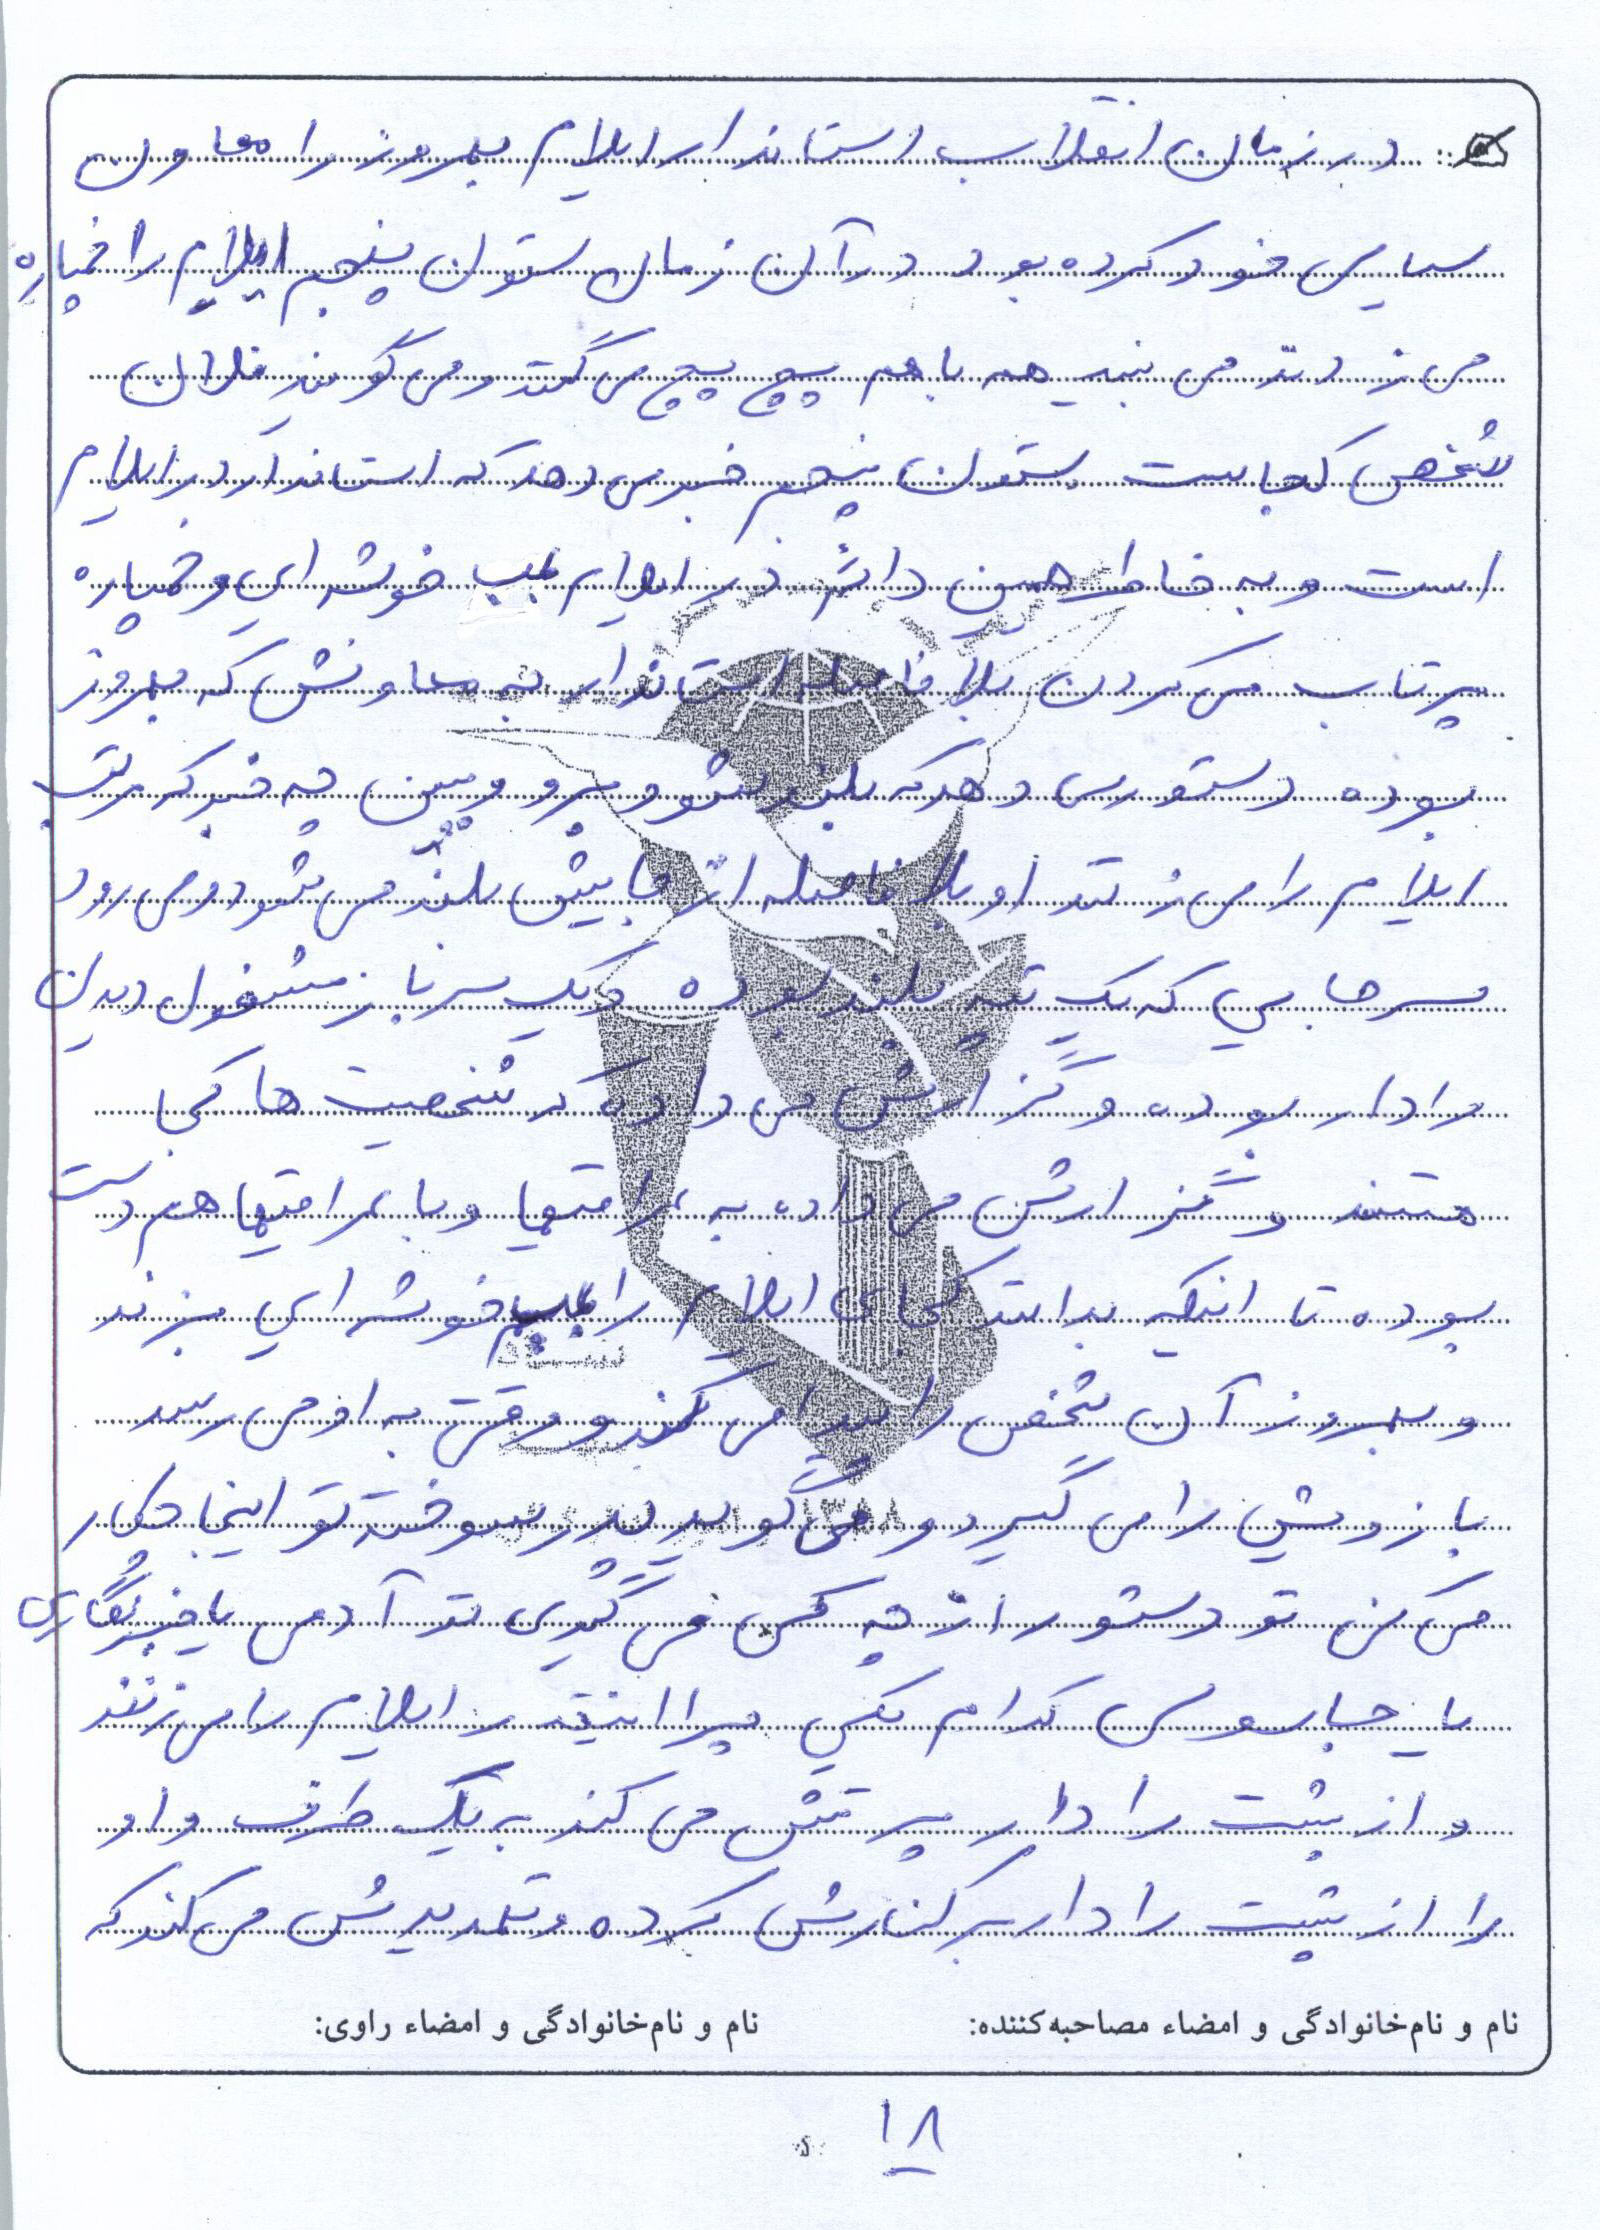 در زمان انقلاب استاندار ایلام بهروز را معاون
سیاسی خود کرده بود در آن زمان ستون پنجم ایلام را خمپاره
می زدند می بنید همه با هم پچ پچ می گفتند و می گویند فلان
شخص کجاست ستون پنجم خبر می دهد که استاندار در ایلام
است و به خاطر همین دائم در ایلام بمب خوشه ای و خمپاره
پرتاب می کردن بلافاصله استاندار به معاونش که بهروز
بوده دستور می دهد که بلند شو و برو و ببین چه خبر که مرتب
ایلام را می زنند او بلافاصله از جایش بلند می شود و می رود
سر جایی که یک تپه بلند بوده و یک سرباز مشغول دیدن
رادار بوده و گزارش می داده که شخصیت ها کجا
هستند و گزارش می داده به عراقیها و با عراقیها هم دست
بوده تا اینکه بدانند کجای ایلام را بمب خوشه ای بزند
و بهروز آن شخص را پیدا می کند و وقتی به او می رسد
بازویش را می گیرد و می گوید پدر سوخته تو اینجا چکار
می کنی تو دستور از چه کسی می گیری تو آدمی یا خبرنگاری
یا جاسوس کدام یکی چرا اینقدر ایلام را می زنند
و از پشت رادار پرتش می کند به یک طرف و او
را از پشت رادار بر کنارش کرده و تهدیدش می کند که
نام و نام‌خانوادگی و امضاء مصاحبه‌کننده:
نام و نام‌خانوادگی و امضاء راوی:
۱۸